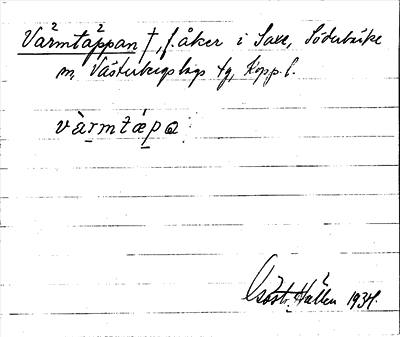 Värmtäppan †, f. åker i Saxe, Söderbärke
sn, Västerbergslags tg, Kopp. l.
värmtæpa
Hallén 1934.